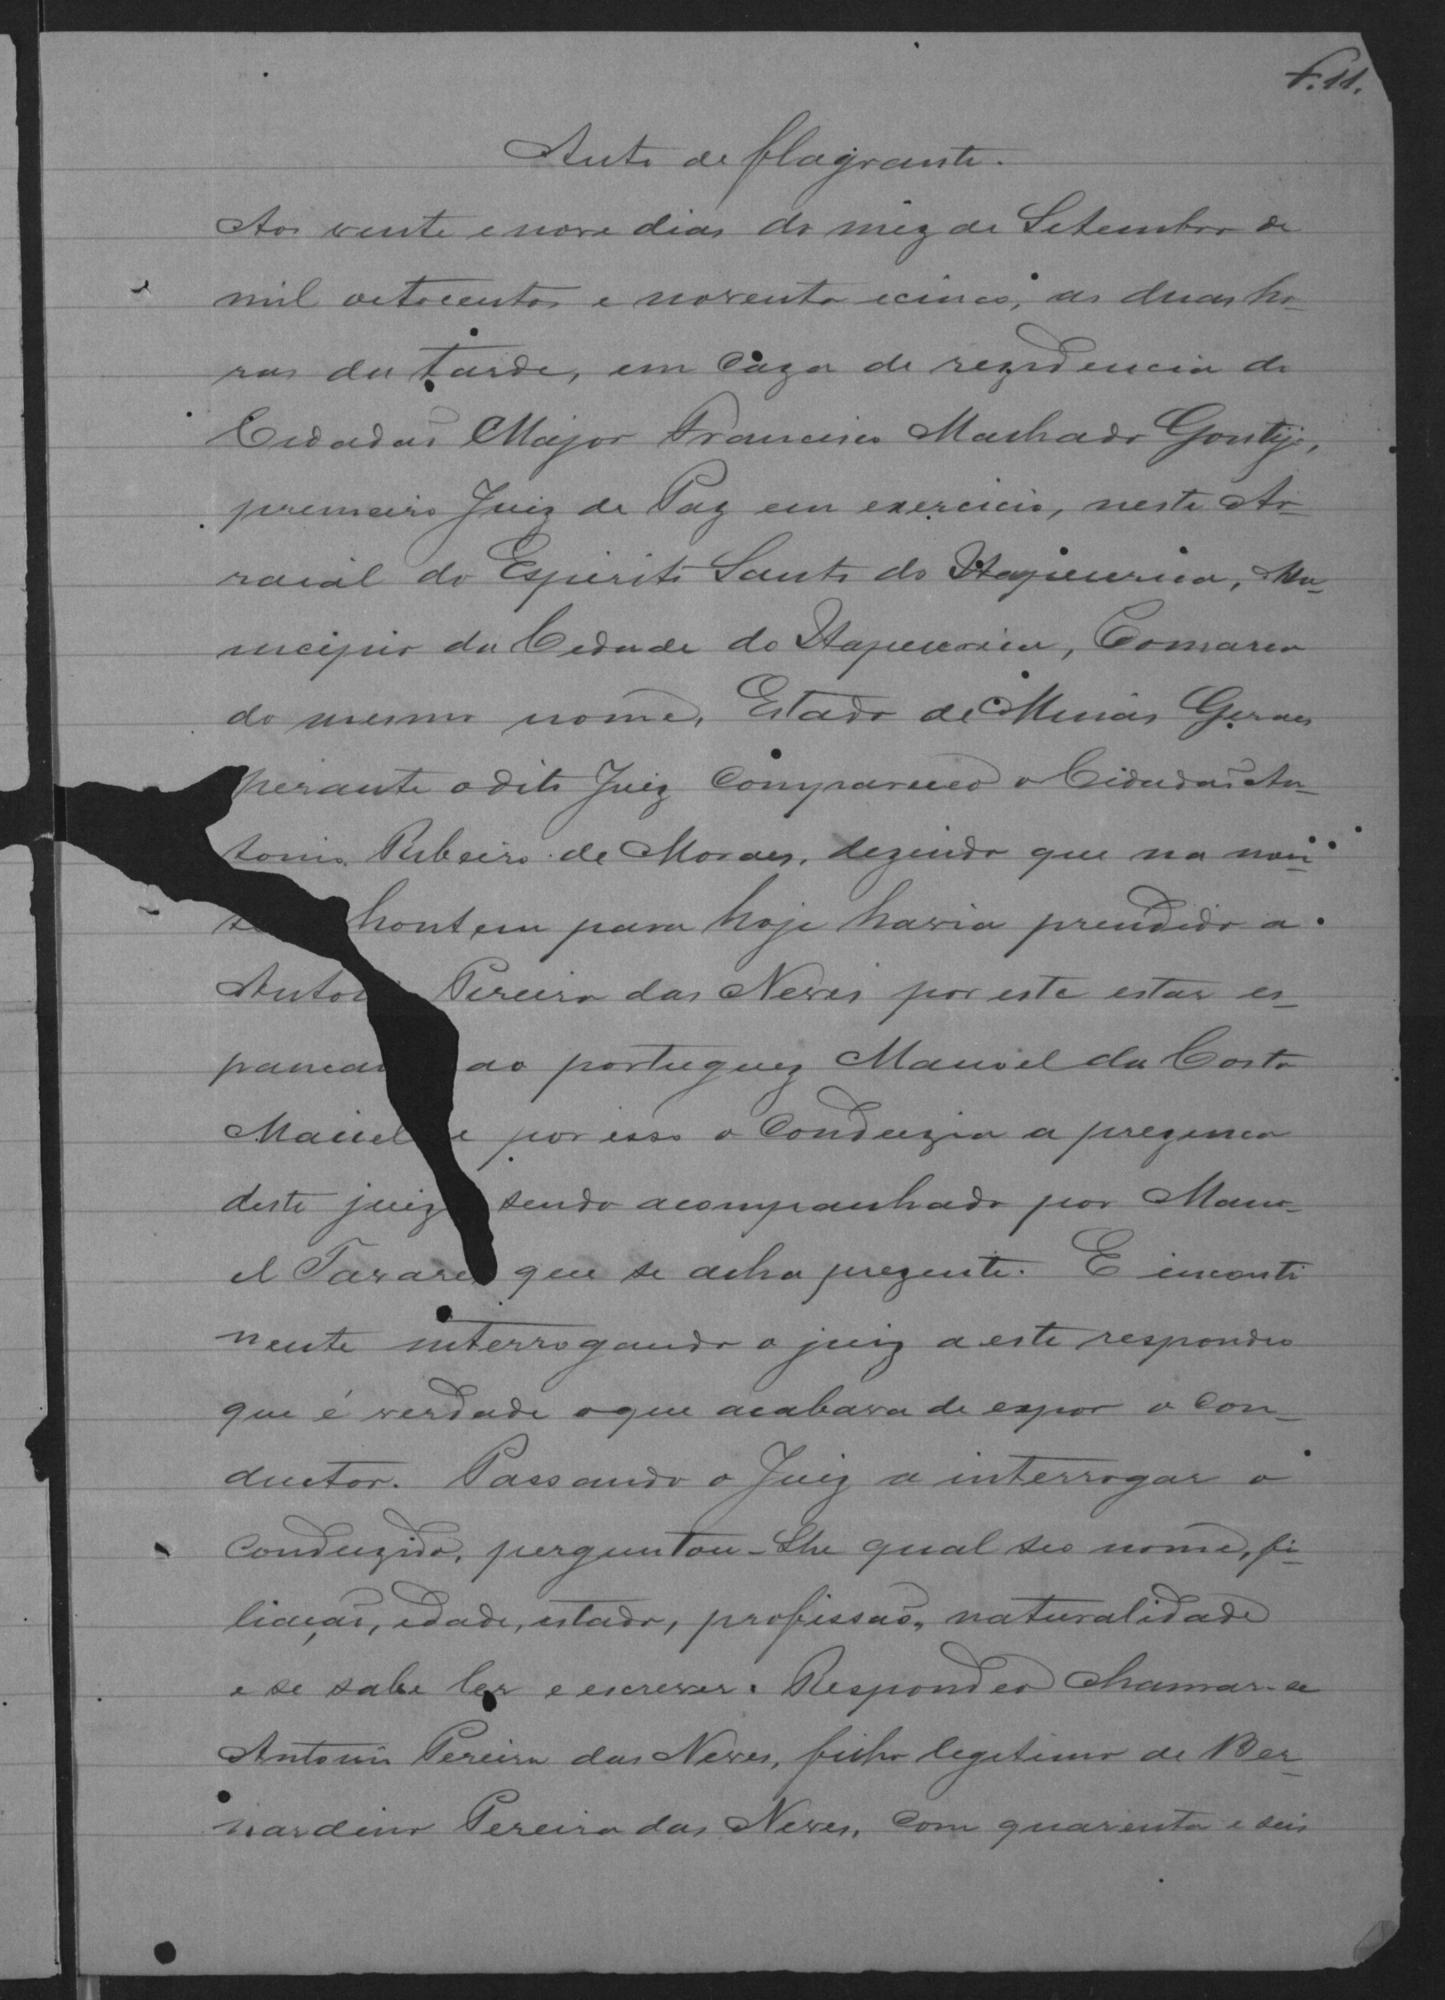 f. 11.
Auto de flagrante.
Aos vinte e nove dias do mez de Setembro de
mil oitocentos e noventa e cinco, as duas ho-
ras da tarde, em caza de rezidencia do
Cidadaõ Major Francisco Machado Gontijo,
premeiro Juiz de Paz em exercicio, neste Ar-
raial do Espirito Santo do Itapicirica, Mu-
nicipio da Cidade do Itapicirica, Comarca
do mesmo nome, Estado de Minas Geraes
perante o dito Juiz compareceo o Cidadaõ An-
tonio Ribeiro de Moraes, dezindo que na noi-
hontem para hoje havia prendido a
Antoni Pereira das Neves por este estar es-
panca ao portuguez Manoel da Costa
Maciel e por isso o conduzia a prezenca
deste juiz sendo acompanhado por Mano-
el Tavares que se acha prezente. E inconti
nente interrogando o juiz a este respondeo
que é verdade o que acabava de expor o con-
ductor. Passando o Juiz a interrogar o
conduzido, perguntou-lhe qual seo nome, fi-
liaçaõ, idade, estado, profissaõ, naturalidade
e se sabe ler e escrever. Respondeo chamar-se
Antonio Pereira das Neves, filho legitimo de Ber-
nardino Pereira das Neves, com quarenta e seis